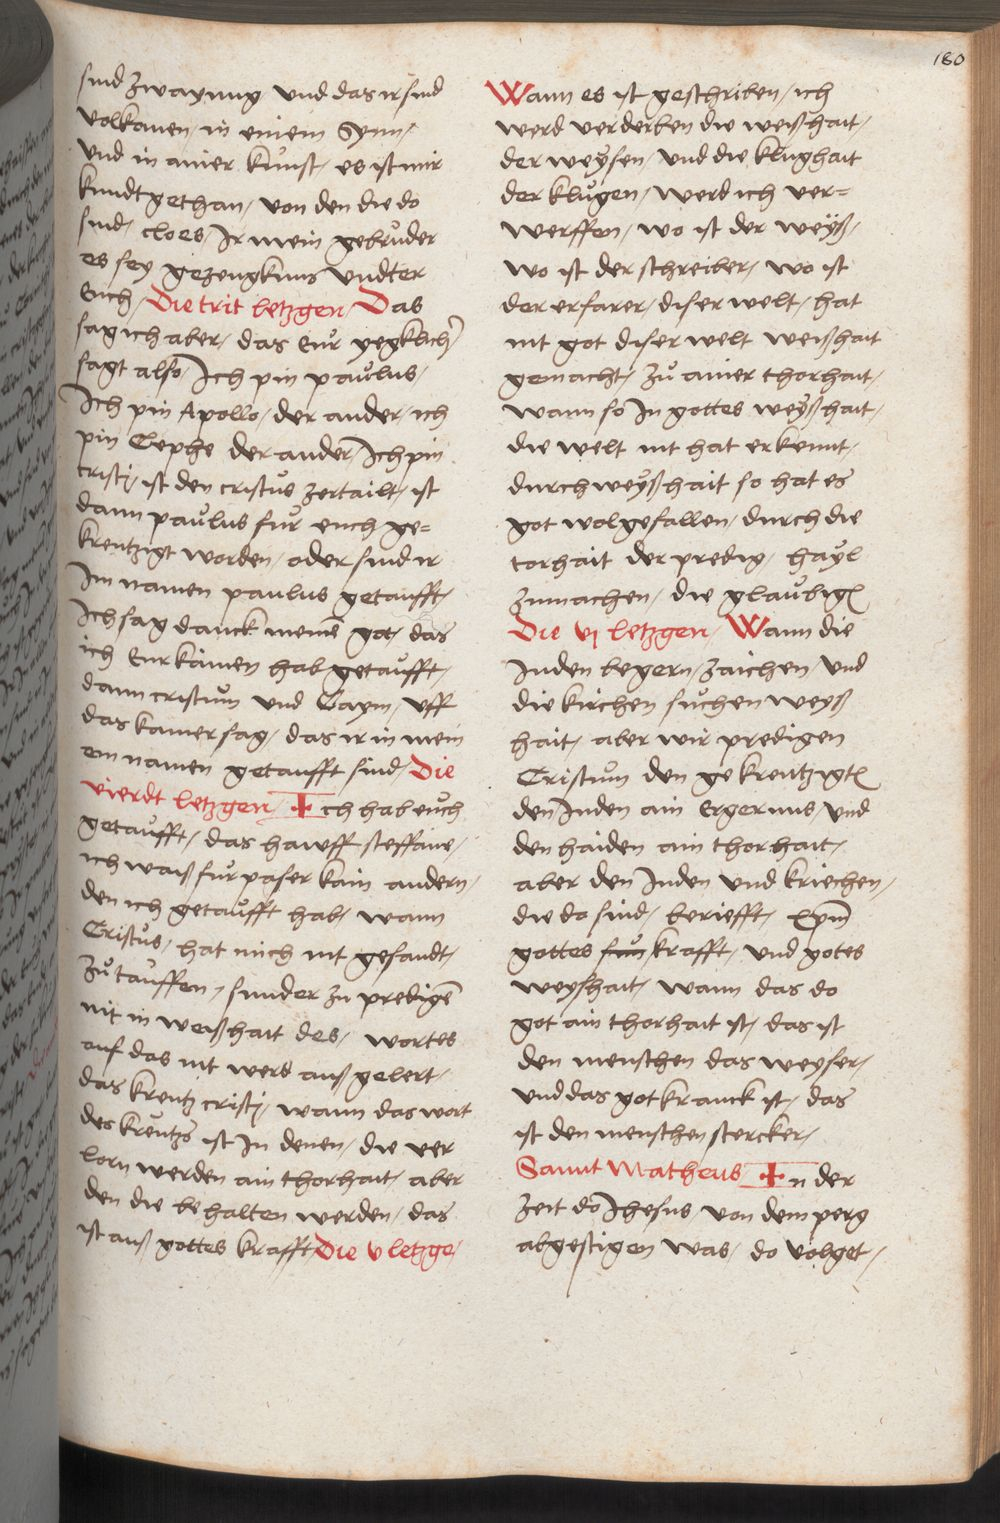 180
sind zwayung vnd das ir sind
volkomen / in einem Synn /
vnd in ainer kunst / es ist mir
kundt gethan / von den die do
sind / cloes / Ir mein gebruder
es sey gezeugknus vndter
Euch / Die trit letzgen / Das
sag ich aber / das Eur yegklicher
sagt also / Ich pin paulus /
Ich pin Apollo / der ander / ich
pin Cephe der ander / Ich pin
cristi / ist den cristus zertailt / ist
dann paulus fur euch ge=
kreutzigt worden / oder sind ir
Im namen paulus getaufft /
Ich sag danck meinē got / das
ich Eur kainen hab getaufft /
dann cristum vnd Gaym / vff
das kainer sag / das ir in mein
em namen getaufft sind / Die
vierdt letzgen / ch hab euch
getaufft / das hawff steffanie /
ich waiß furpaser kain andern /
den ich getaufft hab / wann
Cristus / hat mich nit gesandt /
zu tauffen / sunder zu predigē
nit in weißhait des / wortes
auf das nit werd auß gelert /
das kreutz cristi / wann das wort
des kreutzs ist In denen / die ver
lorn werden ain thorhait / aber
den die behalten werden / das
ist auß gottes krafft / Die v letzge /
Wann es ist geschriben / ich
werd verderben die weißhait /
der weysen / vnd die klughait
der klugen / werd ich ver=
werffen / wo ist der weyß /
wo ist der schreiber / wo ist
der erfarer / diser welt / hat
nit got diser welt weißhait
gemacht / zu ainer thorhait /
wann so In gottes weyßhait /
die welt nit hat erkennt /
durch weyßhait so hat es
got wolgefallen / durch die
torhait der predig / hayl
zumachen / die glaubigen
Die vj letzgen / Wann die
Juden begern / zaichen / vnd
die kirchen suchen weyß
hait / aber wir predigen
Cristum den gekreutzigten
den Juden ain Ergernus / vnd
den haiden ain thorhait /
aber den Juden vnd kriechen /
die do sind / beriefft / xpm̄
gottes krafft / vnd gotes
weyshait / wann das do
got ain thorhait ist / das ist
den menschen das weyser /
vnd das got kranck ist / das
ist den menschen stercker /
Sannt Matheus / n der
zeit do Ihesus / von dem perg
abgestigen was / do volget /